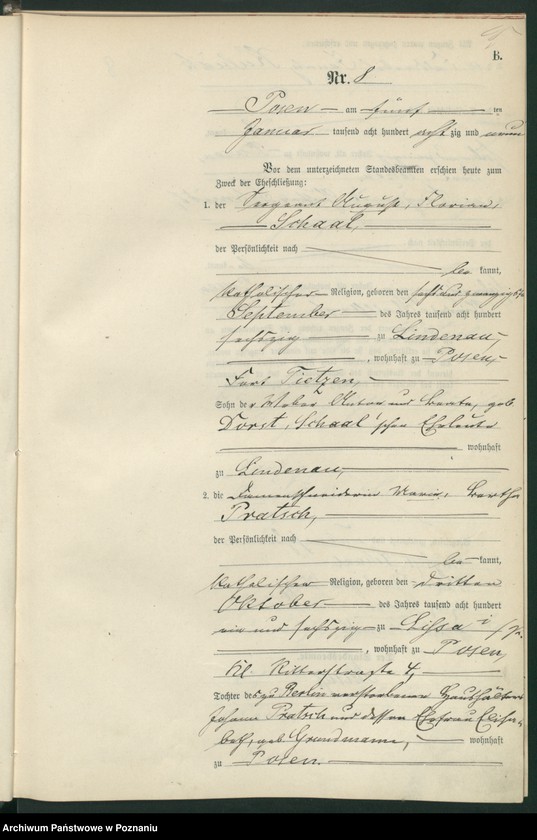 B.
Nr. 8
Posen am fünften
Januar tausend acht hundert achtzig und neun
Vor dem unterzeichneten Standesbeamten erschien heute zum
Zweck der Eheschließung:
1. der Sergeant August, Florian,
Schaal,
der Persönlichkeit nach
be kannt,
katholischer Religion, geboren den sechs und zwanzigsten
September des Jahres tausend acht hundert
sechszig zu Lindenau,
, wohnhaft zu Posen,
Fort Tietzen,
Sohn der Anton und Beate, geb.
Dorst, Schaal'schen Eheleute
wohnhaft
zu Lindenau,
2. die Damenschneiderin Maria, Bertha
Pratsch,
der Persönlichkeit nach
be kannt,
katholischer Religion, geboren den dritten
Oktober des Jahres tausend acht hundert
ein und sechszig zu Lissa i/P.
, wohnhaft zu Posen,
Kl. Ritterstraße 4,
Tochter des zu Berlin verstorbenen Haushälters
Johann Pratsch und dessen Ehefrau Elisa-
beth, geb. Grundmann, wohnhaft
zu Posen.
Archiwum Państwowe w Poznaniu